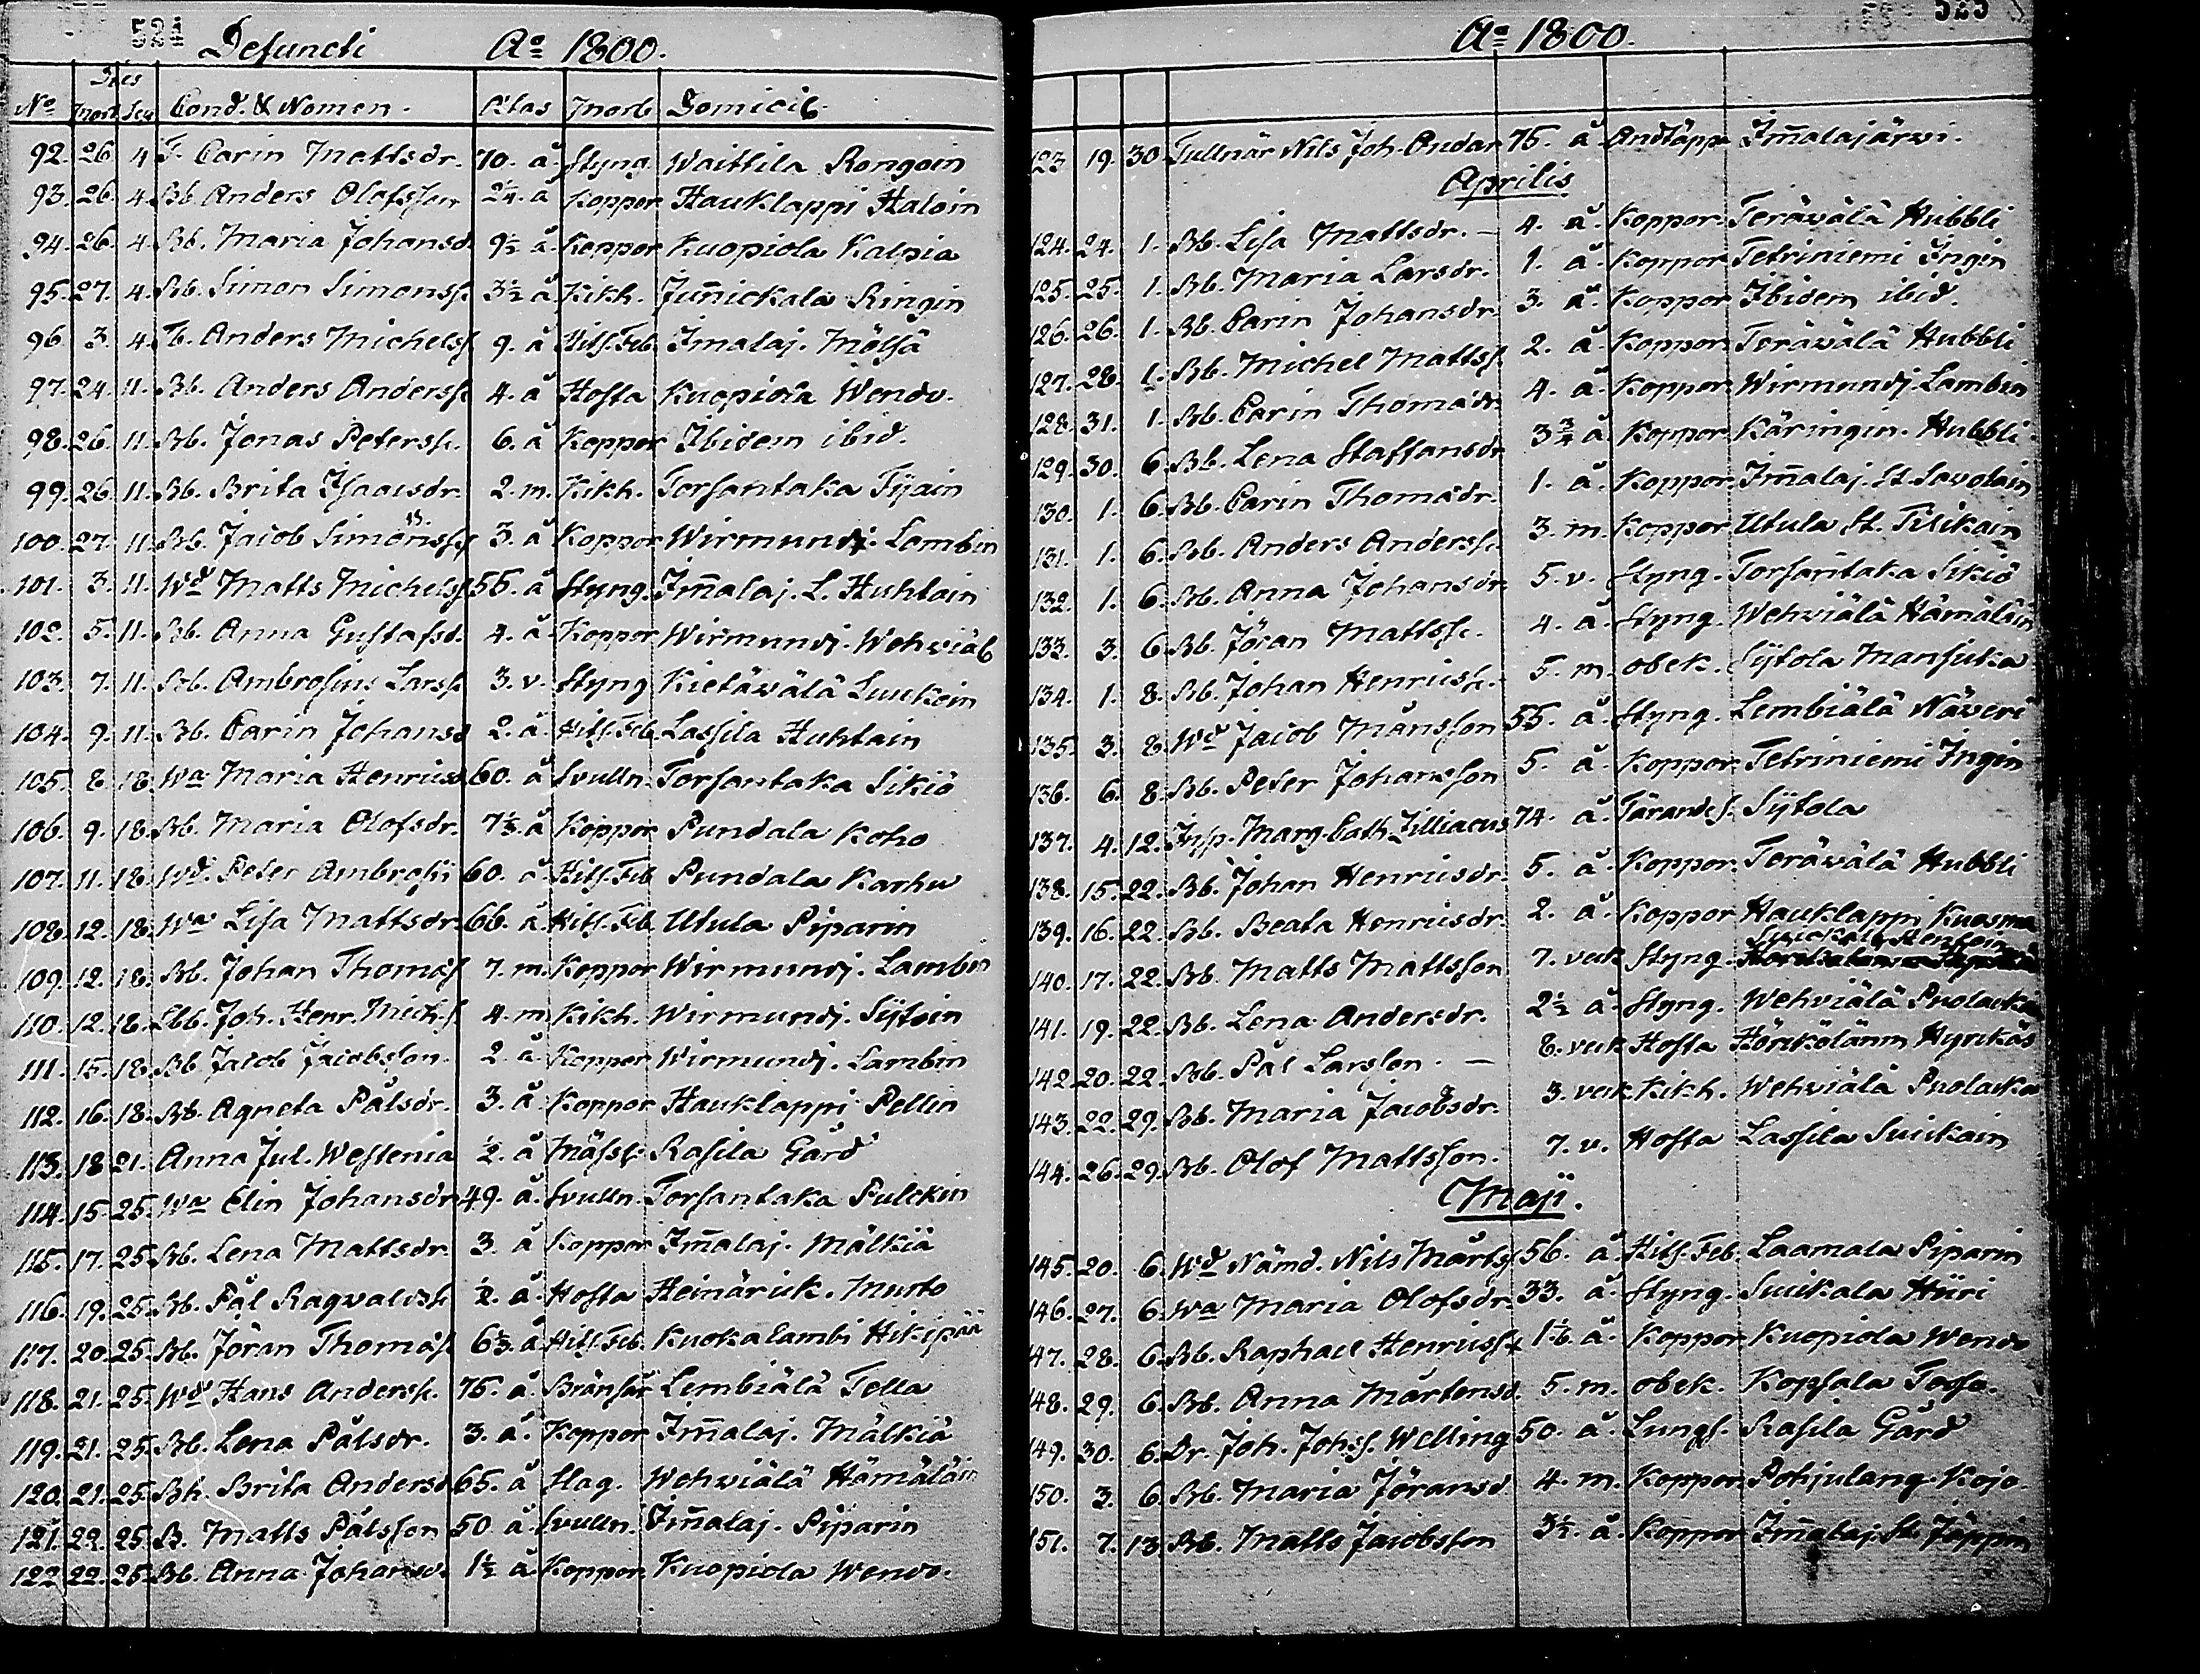 524 Defuncti Aº 1800.
Dies
Nº Mort Sep Cond. & Nomen. Ætas Morb Domicil
92. 26. 4 F. Carin Mattsdr. 70. å Styng. Waittila Rongoin
93. 26. 4. Bb. Anders Olofsson 2¼. å Koppor Hauklappi Haloin
94. 26. 4. Bb. Maria Johansd. 9½ å Koppor Kuopiola Kalpia
95. 27. 4. Bb. Simon Simonss. 3½ å Kikh. Juñickala Ringin
96. 3. 4. Anders Michelss. 9. å Hits.Feb. Imalaj. Mölsä
97. 24. 11. Bb. Anders Anderss. 4. å Hosta Kuopiola Wendo.
98. 26. 11. Bb. Jonas Peterss. 6. å Koppor Ibidem ibid.
99. 26. 11. Bb. Brita Isacsdr. 2. m. Kikh. Torsantaka Tijain
100. 27. 11. Bb. Jacob Simonss. 3. å Koppor Wirmundj. Lambin
101. 3. 11. Wd Matts Michelss. 55. å Styng. Im̃alaj. L. Huhtain
102. 5. 11. Bb. Anna Gustafsd. 4. å Koppor Wirmundj. Wehviäl
103. 7. 11. Bb. Ambrosius Larss. 3. v. Styng Kietäwälä Luukoin
104. 9. 11. Bb. Carin Johansd 2. å Hits.Feb Lassila Huhtain
105. 8. 18. Wa Maria Henricsd 60. å Svulln. Torsantaka Sikiö
106. 9. 18. Bb. Maria Olofsdr. 7½. å Koppor Pundala Koho
107. 11. 18. Wd. Peter Ambrosij 60. å Hits.Feb Pundala Karhu
108. 12. 18. Wa Lisa Mattsdr. 66. å Hits.Feb Utula Piparin
109. 12. 18. Bb. Johan Thomæs. 7. m. Koppor Wirmundj. Lambin
110. 12. 18. Joh. Henr. Mich.s. 4. m Kikh. Wirmundj. Sijtoin
111. 15. 18. Bb Jacob Jacobsson. 2. å Koppor Wirmundj. Lambin
112. 16. 18. Bb. Agneta Pålsdr. 3. å Koppor Hauklappi Pellin
113. 18 21. Anna Jul. Westenia ½. å Mässl. Rasila Gård
114. 15. 25. Wa Elin Johansdr. 49. å. Svulln. Torsantaka Pulckin
115. 17. 25. Bb. Lena Mattsdr. 3. å Koppor Im̃alaj. Mälkiä
116. 19. 25. Bb. Pål Ragvaldss. ½. å. Hosta Heinärick. Musto
117. 20. 25. Bb. Jöran Thomæs. 6½. å Hits.Feb. Kuokalambi Hikipää
118. 21. 25. Wd Hans Anderss. 75. å. Lembiälä Tella
119. 21. 25. Bb. Lena Pålsdr. 3. å. Koppor Im̃alaj. Mälkiä
120. 21. 25. Bh. Brita Andersd 65. å Slag. Wehwiälä Hämäläin
121. 22. 25. B. Matts Pålsson 50. å. Svulln. Im̃alaj. Piparin
122. 22. 25. Bb. Anna Johansd. 1½ å Koppor. Kuopiola Wendo.
525
Aº 1800.
123 19. 30 Tullnär Nils Joh. 75. å Andtäppa Im̃alajärwi.
Aprilis
124. 24. 1. Bb. Lisa Mattsdr. – 4. å. Koppor. Teräwälä Hubbli
125. 25. 1. Bb. Maria Larsdr. 1. å. Koppor Tetriniemi Ingin
126. 26. 1. Bb. Carin Johansdr 3. å. Koppor Ibidem ibid.
127. 28. 1. Bb. Michel Mattss. 2. å. Koppor. Teräwälä Hubbli
128. 31. 1. Bb. Carin Thomædr. 4. å. Koppor. Wirmundj. Lambin
129. 30. 6. Bb. Lena Staffansdr 3¾ å Koppor Käringin. Hubbli.
130. 1. 6. Bb. Carin Thomædr. 1. å. Koppor. Im̃alaj. St. Savolain
131. 1. 6. Bb. Anders Anderss. 3. m. Koppor Utula St. Tisikain
132. 1. 6. Bb. Anna Johansdr. 5. v. Styng. Torsantaka Sikiö
133. 3. 6. Bb. Jöran Mattss. 4. å. Styng. Wehwiälä Hämäläin
134. 1. 8. Bb. Johan Henricss. 5. m. obek. Sijtola Mansuka
135. 3. 8. Wd Jacob Månsson 55. å. Styng. Lembiälä Näveri
136. 6. 8. Bb. Peter Johansson 5. å. Koppor. Tetriniemi Ingin
137. 4. 12. Insp. Marg. Cath. Zilliacus 74. å. Sijtola
138. 15. 22. Bb. Johan Henricsdr. 5. å. Koppor. Teräwälä Hubbli
139. 16. 22. Bb. Beata Henricsdr. 2. å. Koppor Hauklappi Kuosma
140. 17. 22. Bb. Matts Mattsson 7. veck Styng.
141. 19. 22. Bb. Lena Andersdr. 2½ å. Styng. Wehviälä Puolacka
142. 20. 22. Bb. Pål Larsson. – 8. veck Hosta Hörckölänm Hyrckäs
143. 22. 29. Bb. Maria Jacobsdr. 3. veck. Kikh. Wehviälä Puolacka
144. 26. 29. Bb. Olof Mattsson. 7. v. Hosta Lassila Suickain
Maji.
145. 20. 6. Wd Nämd. Nils Mårtss 56. å. Hits.Feb. Laamala Piparin
146. 27. 6. Wa Maria Olofsdr. 33. å. Styng. Suickala Hiiri
147. 28. 6. Bb. Raphael Henricss. 1½. å. Koppor Kuopiola Wendo
148. 29. 6. Bb. Anna Mårtensd. 5. m. obek. Kopsala
149. 30. 6. Dr. Joh. Johss. Welling 50. å. Lungs. Rasila Gård
150. 3. 6. Bb. Maria Jöransd. 4. m. Koppor. Pohjulang. Kojo.
151. 7. 13. Bb. Matts Jacobsson 3½. å. Koppor Im̃alaj. St. Jäppin